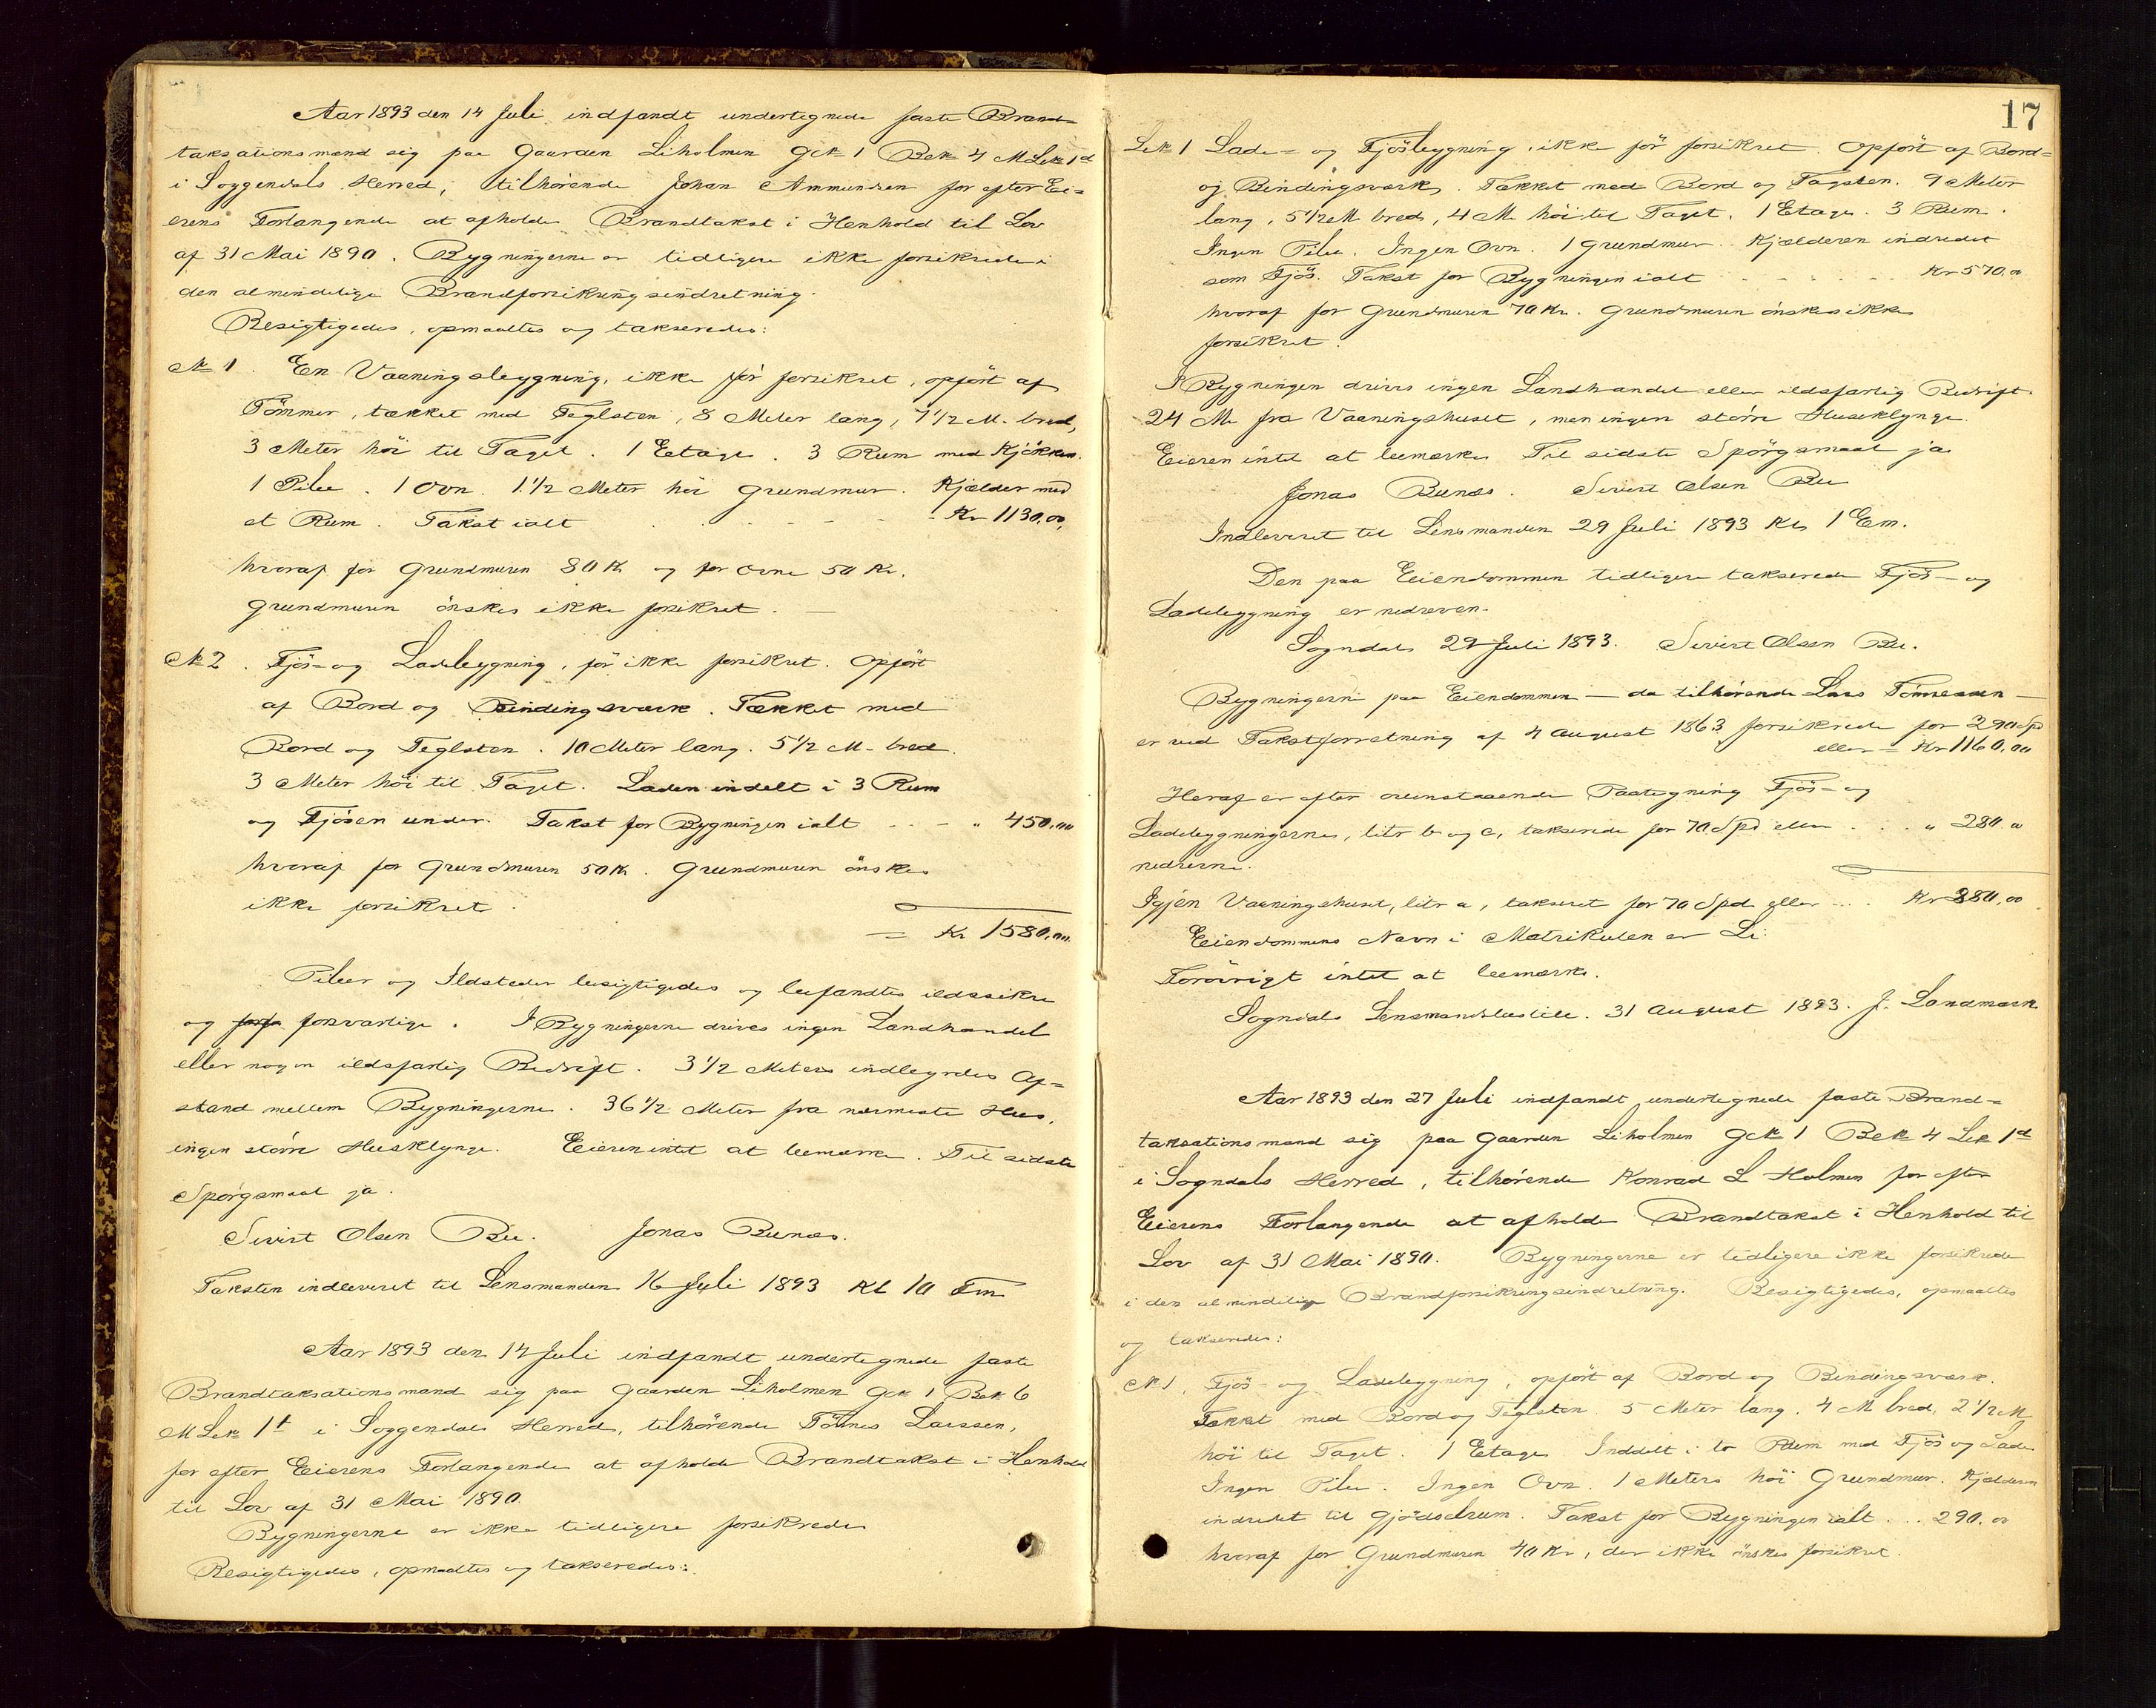 Aar 1893 den 14 Juli indfandt undertegnede faste Brand-
taksationsmænd sig paa Gaarden Liholmen Gck 1 Bek 4 M Lek 1d
i Soggendals Herred, tilhørende Johan Ammundsen for efter Ei-
erens Forlangende at afholde Brandtakst i Henhold til Lov
af 31 Mai 1890. Bygningerne er tidligere ikke forsikrede i
den almindelige Brandforsikringsindretning.
Besigtigedes, opmaaltes og takseredes:
№ 1. En Vaaningsbygning, ikke før forsikret, opført af
Tømmer, tækket med Teglsten, 8 Meter lang, 7 1/2 M. bred,
3 Meter høi til Taget. 1 Etage. 3 Rum med Kjøkken.
1 Pibe. 1 Ovn. 1 1/2 Meter høi Grundmur. Kjælder med
et Rum. Takst ialt - - - - Kr 1130,00,
hvoraf for Grundmuren 80 Kr og for Ovne 50 Kr.
Grundmuren ønskes ikke forsikret. —
№ 2. Fjøs- og Ladebygning, før ikke forsikret. Opført
af Bord og Bindingsværk. Tækket med
Bord og Teglsten. 10 Meter lang. 5 1/2 M. bred.
3 Meter høi til Taget. Laden indelt i 3 Rum
og Fjøsen under. Takst for Bygningen ialt - - - " 450,00
hvoraf for Grundmuren 50 Kr. Grundmuren ønskes
ikke forsikret.
= Kr 1580,00.
Piber og Ildsteder besigtigedes og befandtes ildssikre
og forsvarlige. I Bygningerne drives ingen Landhandel
eller nogen ildsfarlig Bedrift. 3 1/2 Meters indbyrdes Af-
stand mellem Bygningerne. 36 1/2 Meter fra nærmeste Hus,
ingen større Husklynge. Eieren intet at bemærke. Til sidste
Spørgsmaal ja.
Sivert Olsen Bu. Jonas Bunæs.
Taksten indleveret til Lensmanden 16 Juli 1893 Kl 10 Fm
Aar 1893 den 14 Juli indfandt undertegnede faste
Brandtaksationsmænd sig paa Gaarden Liholmen Gck 1 Bek 6
M Lek 1t i Soggendals Herred, tilhørende Tønnes Larssen,
for efter Eierens Forlangende at afholde Brandtakst i Henhold
til Lov af 31 Mai 1890.
Bygningerne er ikke tidligere forsikrede
Besigtigedes, opmaaltes og takseredes:
17
Lek 1 Lade- og Fjøsbygning, ikke før forsikret. Opført af Bord-
og Bindingsværk. Tækket med Bord og Tagsten. 9 Meter
lang, 5 1/2 M bred, 4 M høi til Taget. 1 Etage. 3 Rum.
Ingen Pibe. Ingen Ovn. 1 Grundmur. Kjælderen indredet
som Fjøs. Takst for Bygningen ialt - - - - Kr 570,00
hvoraf for Grundmuren 70 Kr. Grundmuren ønskes ikke
forsikret.
I Bygningen drives ingen Landhandel eller ildsfarlig Bedrift.
24 M fra Vaaningshuset, men ingen større Husklynge.
Eieren intet at bemærke. Til sidste Spørgsmaal ja
Jonas Bunæs. Sivert Olsen Bu
Indleveret til Lensmanden 29 Juli 1893 Kl 1 Em.
Den paa Eiendommen tidligere takserede Fjøs- og
Ladebygning er nedreven.
Sogndal 29 Juli 1893. Sivert Olsen Bu.
Bygningerne paa Eiendommen — da tilhørende Lars Tønnessen —
er ved Takstforretning af 4 August 1863 forsikrede for 290 Spd
eller = Kr 1160,00
Heraf er efter ovenstaaende Paategning Fjøs- og
Ladebygningerne, litr b og c, takserede for 70 Spd eller . . . " 280,00
nedrevne.
Igjen Vaaningshuset, litr a, takseret for 70 Spd eller . . . Kr 880,00
Eiendommens Navn i Matrikulen er Li.
Forøvrigt intet at bemærke.
Sogndals Lensmandsbestill. 31 August 1893. J. Landmark
Aar 1893 den 27 Juli indfandt undertegnede faste Brand-
taksationsmænd sig paa Gaarden Liholmen Gck 1 Bek 4 Lek 1d
i Sogndals Herred, tilhørende Konrad L Holmen for efter
Eierens Forlangende at afholde Brandtakst i Henhold til
Lov af 31 Mai 1890. Bygningerne er tidligere ikke forsikrede
i den almindelige Brandforsikringsindretning. Besigtigedes, opmaaltes
og takseredes:
№ 1. Fjøs- og Ladebygning, opført af Bord og Bindingsværk.
Tækket med Bord og Teglsten. 5 Meter lang. 4 M bred, 2 1/2 M
høi til Taget. 1 Etage Inddelt i to Rum med Fjøs og Lade
Ingen Pibe. Ingen Ovn. 1 Meters høi Grundmur. Kjælderen
indredet til Gjødselrum. Takst for Bygningen ialt . . . 290,00
hvoraf for Grundmuren 40 Kr, der ikke ønskes forsikret.